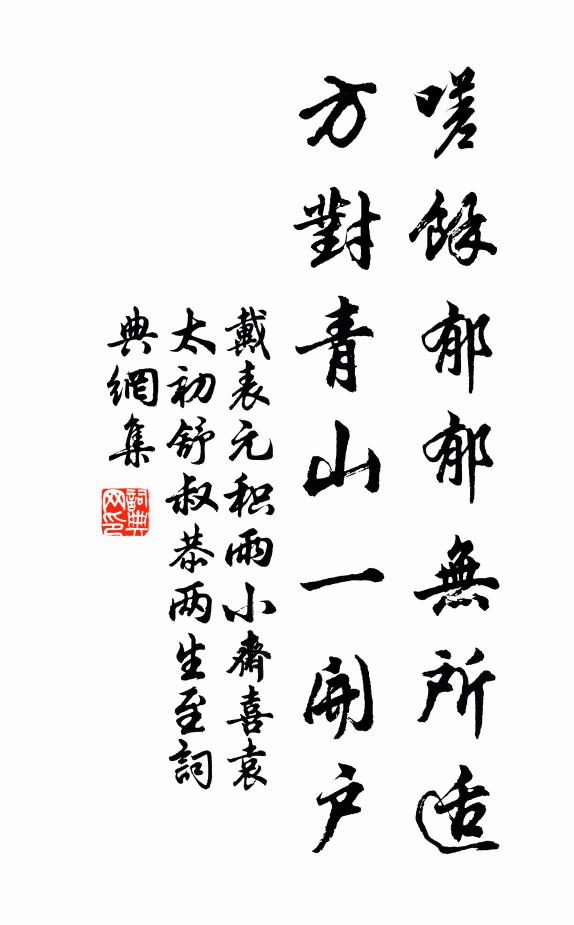 嗟餘郁郁無所适
方對青山一開户
戴表元积雨小齋喜袁
太初舒叔恭两生至詞
典網集
詞典网印